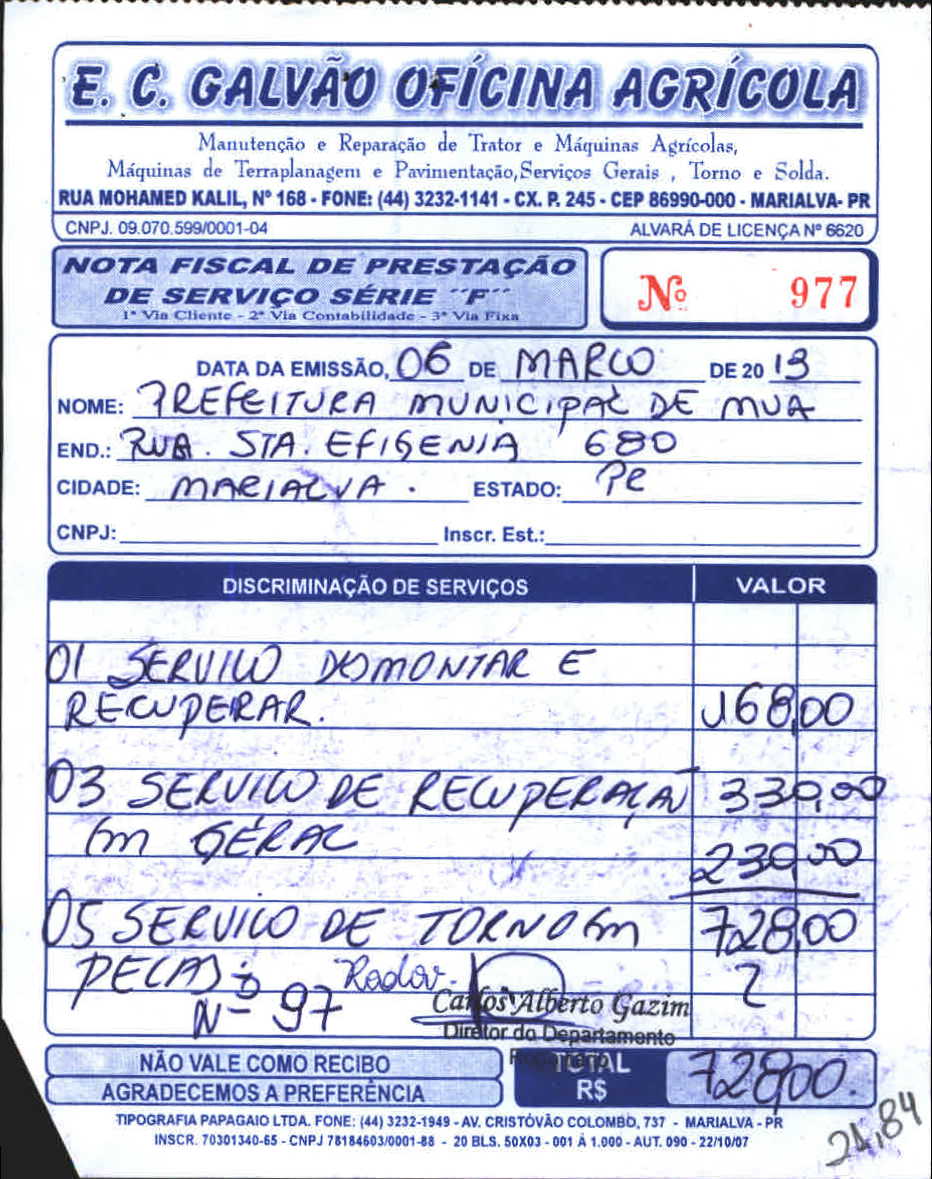 E. C. GALVÃO OFÍCINA AGRÍCOLA
Manutenção e Reparação de Trator e Máquinas Agrícolas,
Máquinas de Terraplanagem e Pavimentação,Serviços Gerais , Torno e Solda.
RUA MOHAMED KALIL, Nº 168 - FONE: (44) 3232-1141 - CX. P. 245 - CEP 86990-000 - MARIALVA- PR
CNPJ. 09.070.599/0001-04 ALVARÁ DE LICENÇA Nº 6620
NOTA FISCAL DE PRESTAÇÃO
DE SERVIÇO SÉRIE ´´F´´
1ª Via Cliente - 2ª Via Contabilidade - 3ª Via Fixa
Nº 977
DATA DA EMISSÃO, 06 DE MARCO DE 20 13
NOME: PREFEITURA MUNICIPAL DE MUA
END.: RUA. STA. EFIGENIA 680
CIDADE: MARIALVA . ESTADO: PR
CNPJ: Inscr. Est.:
DISCRIMINAÇÃO DE SERVIÇOS VALOR
01 SERVICO DESMONTAR E
RECUPERAR. 168,00
03 SERVICO DE RECUPERAÇAN 330,00
Em GÉRAL 230,00
05 SERVICO DE TORNO Em 728,00
PECAS Rodov.
Nº 97
Carlos Alberto Gazim
Diretor do Departamento
NÃO VALE COMO RECIBO
AGRADECEMOS A PREFERÊNCIA
TOTAL
R$ 728,00.
24,84
TIPOGRAFIA PAPAGAIO LTDA. FONE: (44) 3232-1949 - AV. CRISTÓVÃO COLOMBO, 737 - MARIALVA - PR
INSCR. 70301340-65 - CNPJ 78184603/0001-88 - 20 BLS. 50X03 - 001 À 1.000 - AUT. 090 - 22/10/07